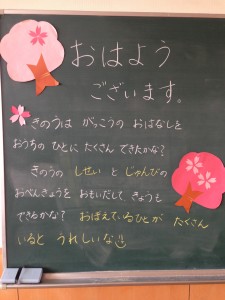 おはよう
ございます。
きのうは がっこうの おはなしを
おうちの ひとに たくさん できたかな?
きのうの しせい と じゅんびの
おべんきょうを おもいだして きょうも
できるかな? おぼえているひとが たくさん
いると うれしいな